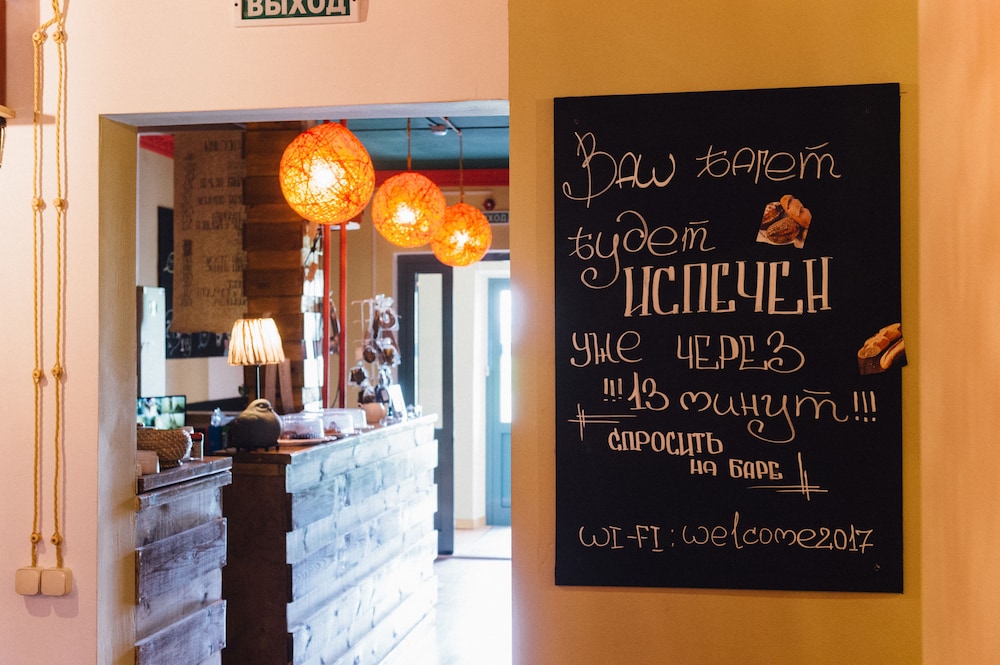 ВЫХОД
Ваш багет
будет
ИСПЕЧЕН
УЖЕ ЧЕРЕЗ
!!! 13 минут!!!
СПРОСИТЬ
НА БАРЕ
WI-FI: welcome2017